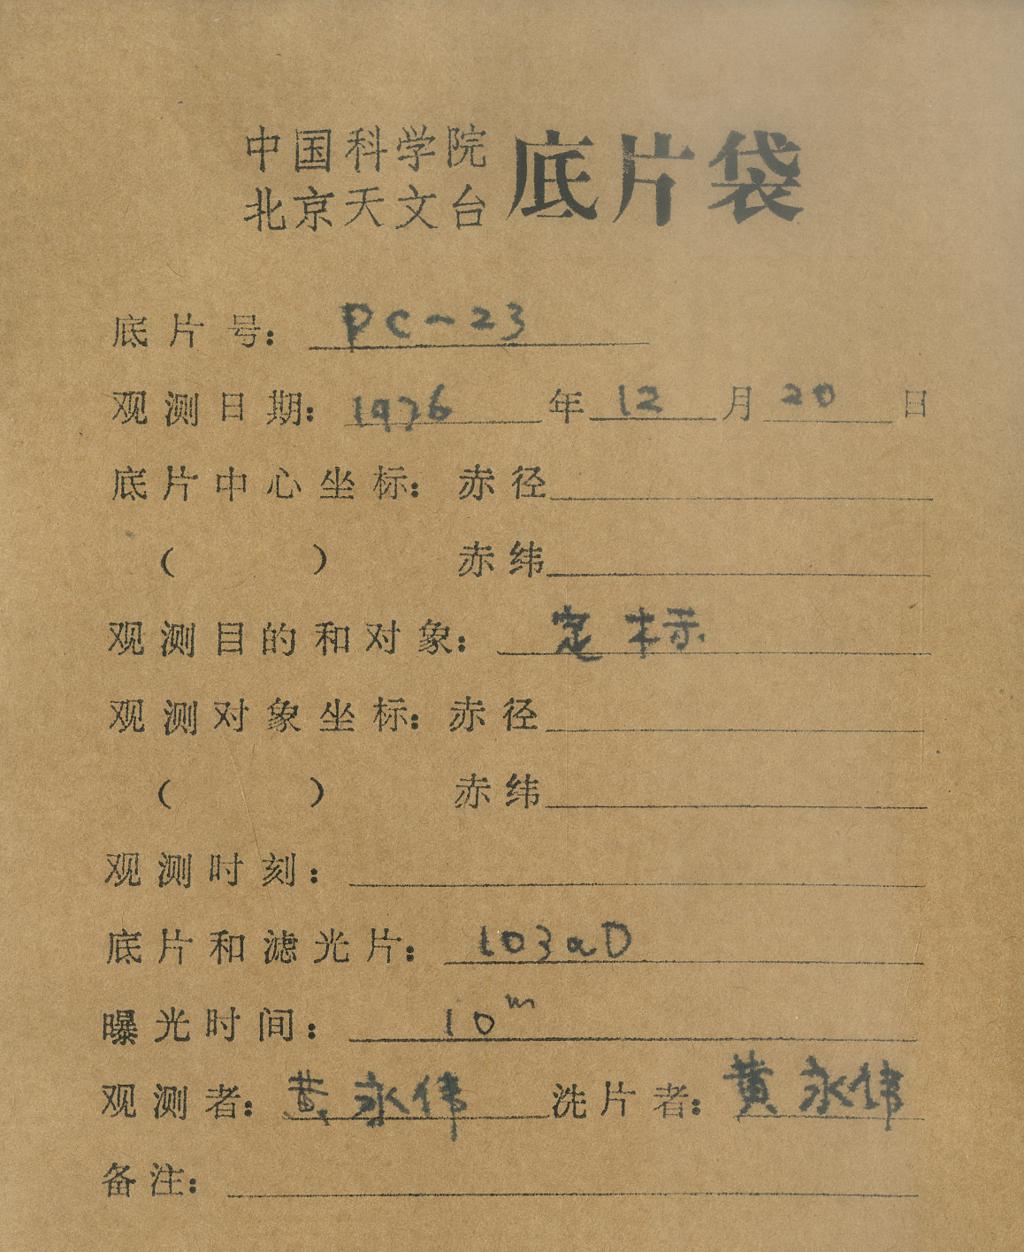 中国科学院
北京天文台 底片袋
底片号: PC-23
观测日期: 1976年12月20日
底片中心坐标: 赤径
( ) 赤纬
观测目的和对象: 定标
观测对象坐标: 赤径
( ) 赤纬
观测时刻:
底片和滤光片: 103aD
曝光时间: 10m
观测者: 黄永伟 洗片者: 黄永纬
备注: